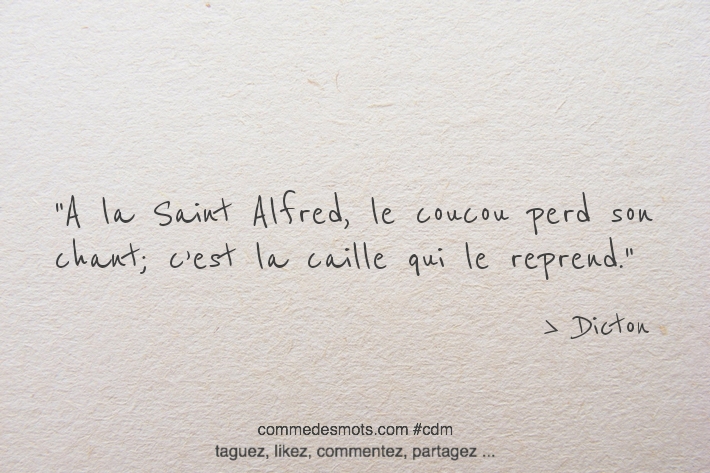 "A la Saint Alfred, le coucou perd son
chant; c'est la caille qui le reprend."
> Dicton
commedesmots.com #cdm
taguez, likez, commentez, partagez ...